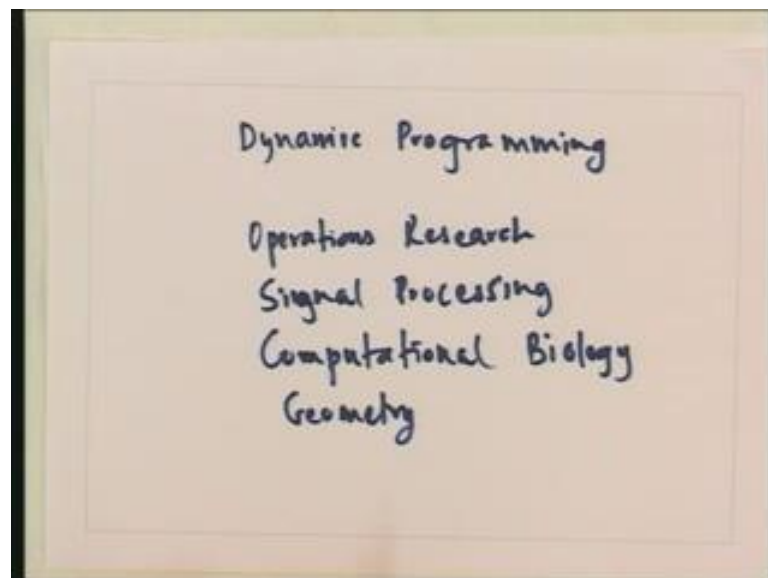 Dynamic Programming
Operations Research
Signal Processing
Computational Biology
Geometry